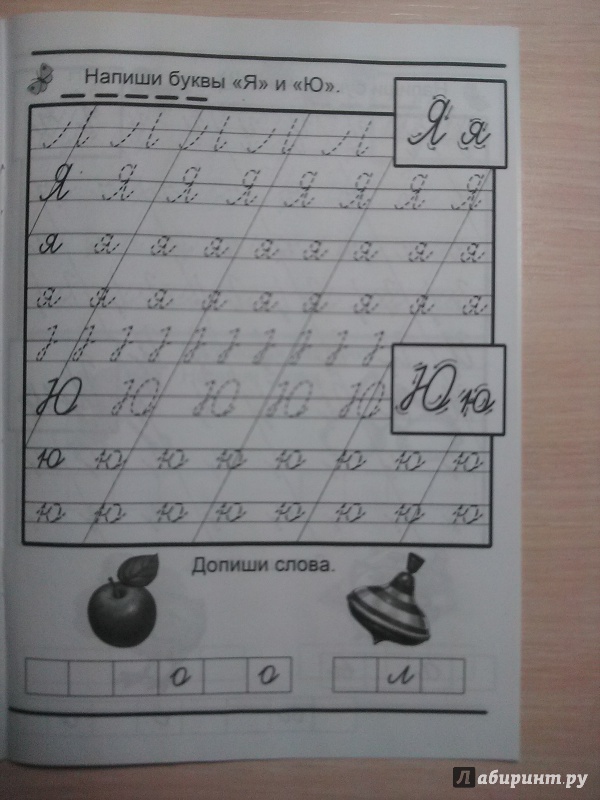 Напиши буквы «Я» и «Ю».
Л Л Л Л Л
Я я
Я Я Я Я Я Я Я Я
я я я я я я я я
я я я я я я я я я
Ю Ю Ю Ю Ю
Ю ю
ю ю ю ю ю ю ю ю
ю ю ю ю ю ю ю ю
Допиши слова.
о о
л
Лабиринт.ру